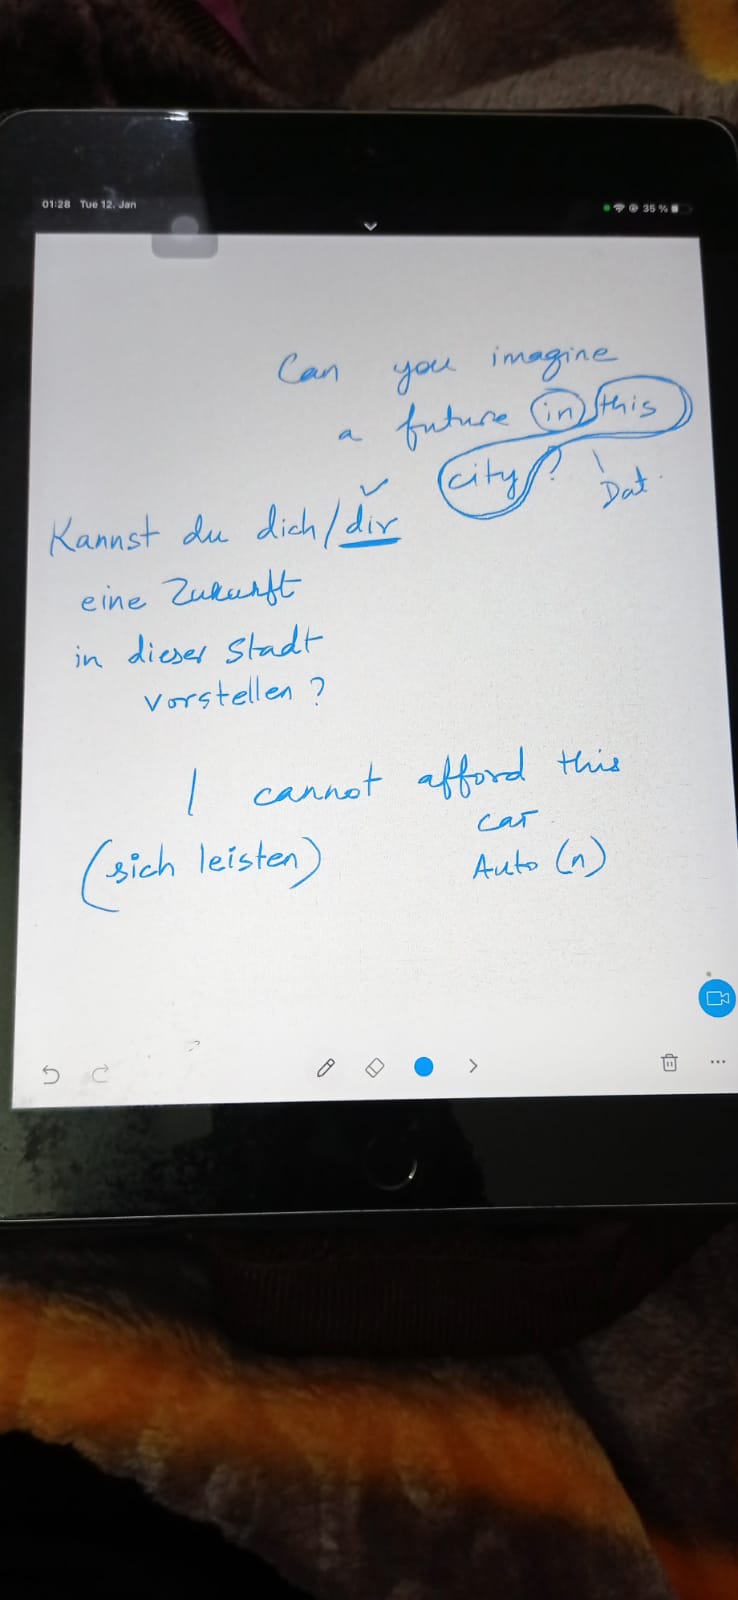 01:28 Tue 12. Jan
35 %
Can you imagine
a future in this
city? Dat.
Kannst du dich/dir
eine Zukunft
in dieser Stadt
vorstellen?
I cannot afford this
car
(sich leisten) Auto (n)